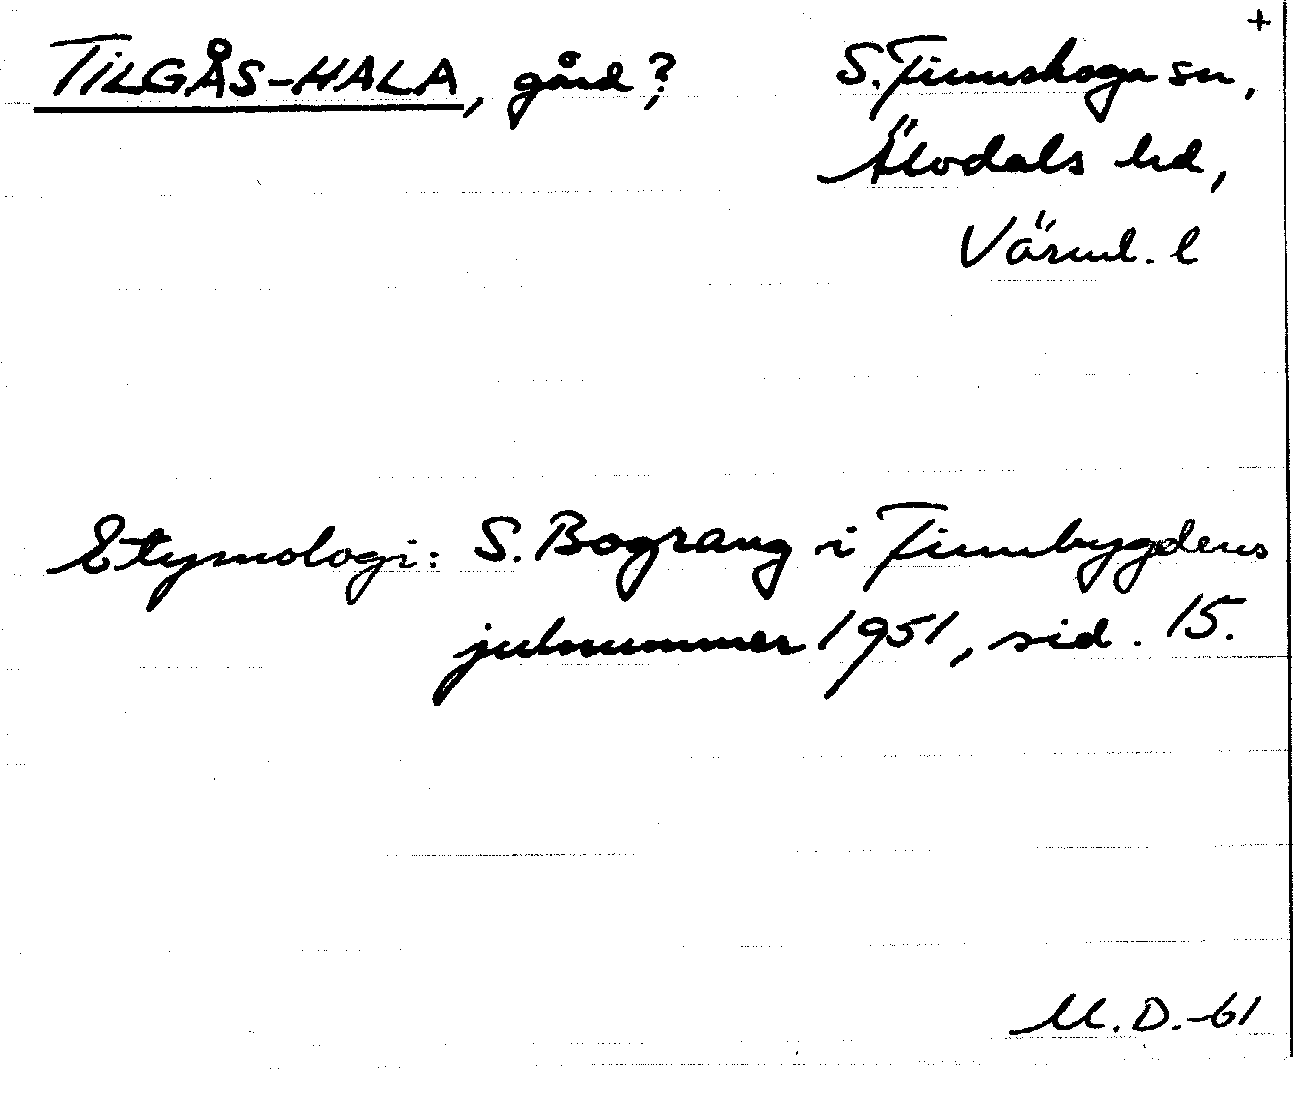 +
TILGÅS-HALA, gård?, S. Finnskoga sn,
Älvdals hd,
Värml. l
Etymologi: S. Bograng i Finnbygdens
julnummer 1951, sid. 15.
M. D. -61